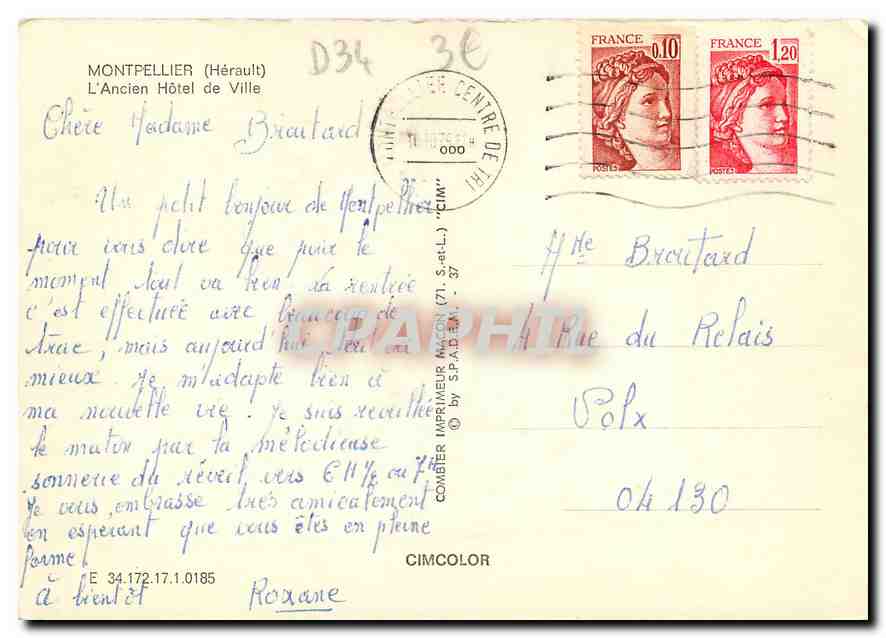 MONTPELLIER (Hérault)
L'Ancien Hôtel de Ville
D34 3€
MONTPELLIER CENTRE DE TRI
000
FRANCE
0,10
POSTES
FRANCE
1,20
POSTES
Chère Madame Broutard
Un petit bonjour de Montpellier
pour vous dire que pour le
moment tout va bien. La rentrée
c'est effectuée avec beaucoup de
trac, mais aujourd'hui va
mieux. Je m'adapte bien à
ma nouvelle vie. Je suis reveillée
le matin par la mélodieuse
sonnerie du réveil vers 6H ½ ou 7H
Je vous embrasse très amicalement
en esperant que vous êtes en pleine
forme
à bientôt Roxane
E 34.172.17.1.0185
COMBIER IMPRIMEUR MACON (71. S.-et-L.) "CIM"
© by S.P.A.D.E.M. - 37
CPAPHIL
CIMCOLOR
Mme Broutard
4 Rue du Relais
Volx
04130